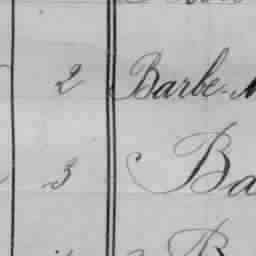 2 Barbe
3 Ba